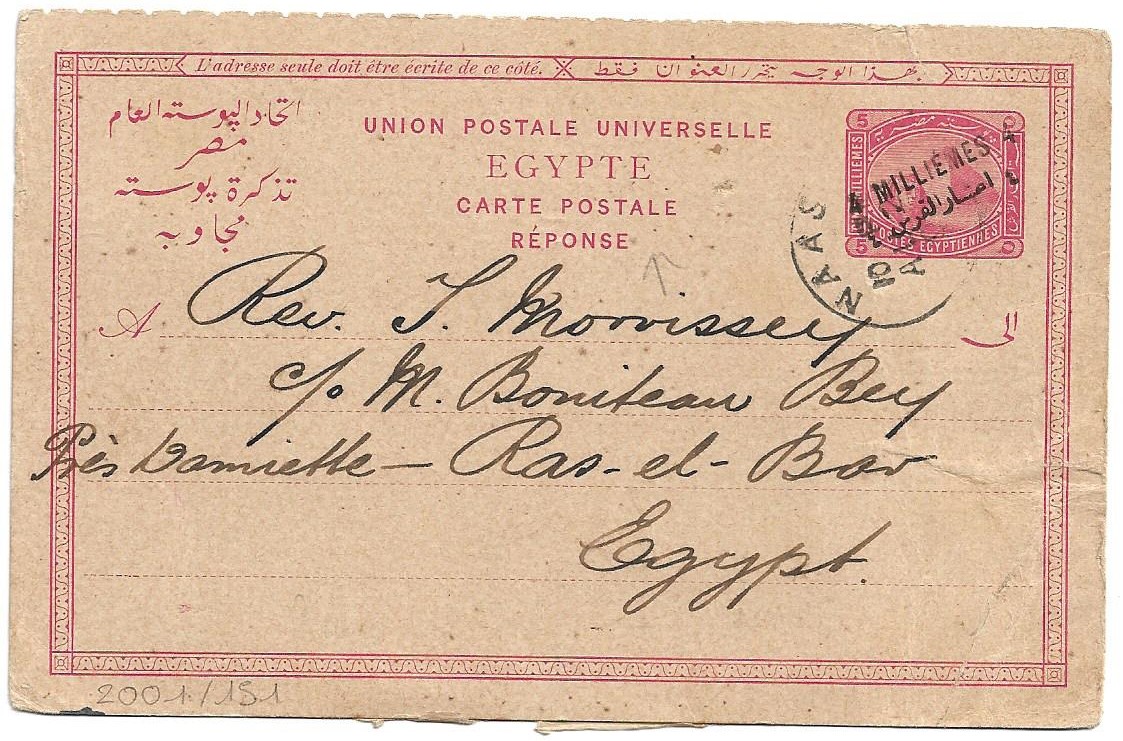 L'adresse seule doit être écrite de ce côté. بهذا الوجه يحرر العنوان فقط
اتحاد البوسته العام
مصر
تذكرة بوسته
مجاوبه
UNION POSTALE UNIVERSELLE
EGYPTE
CARTE POSTALE
RÉPONSE
5 MILLIEMES 5
POSTES EGYPTIENNES
4 MILLIÈMES 4
NAAS
A الى
Rev. J. Morrissey
c/o M. Boniteau Bey
Près Damiette — Ras-el-Bar
Egypt.
2001/151